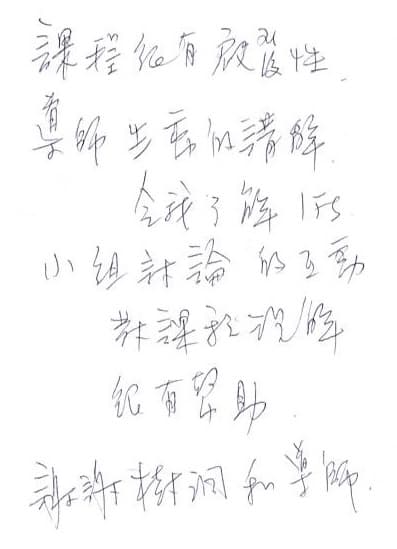 課程很有啟發性.
導師生動的講解.
令我了解 IFS
小組討論的互動
對課程理解
很有幫助.
謝謝樹洞和導師.